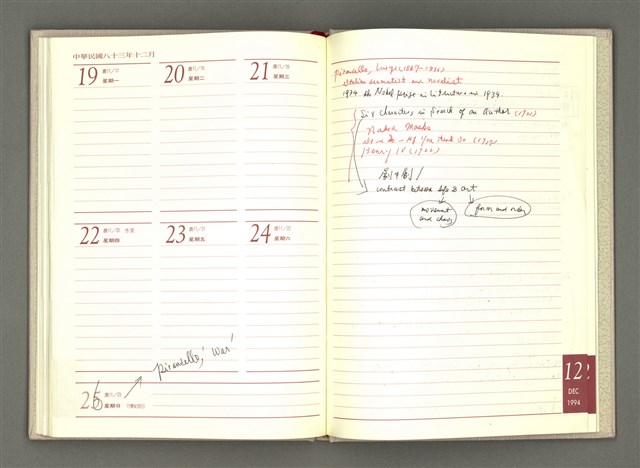 中華民國八十三年十二月
19 星期一
20 星期二
21 星期三
22 冬至
星期四
23 星期五
24 星期六
Pirandello, 'War'
25 星期日
Pirandello, Luigi (1867-1936)
Italian dramatist and novelist
1934. the Nobel prize in literature in 1934.
Six characters in search of an Author (1921)
Naked Masks
It is so - If you think so (1917)
Henry IV (1922)
劇中劇!
contrast between life & art
movement
and change
form and order
12
DEC
1994